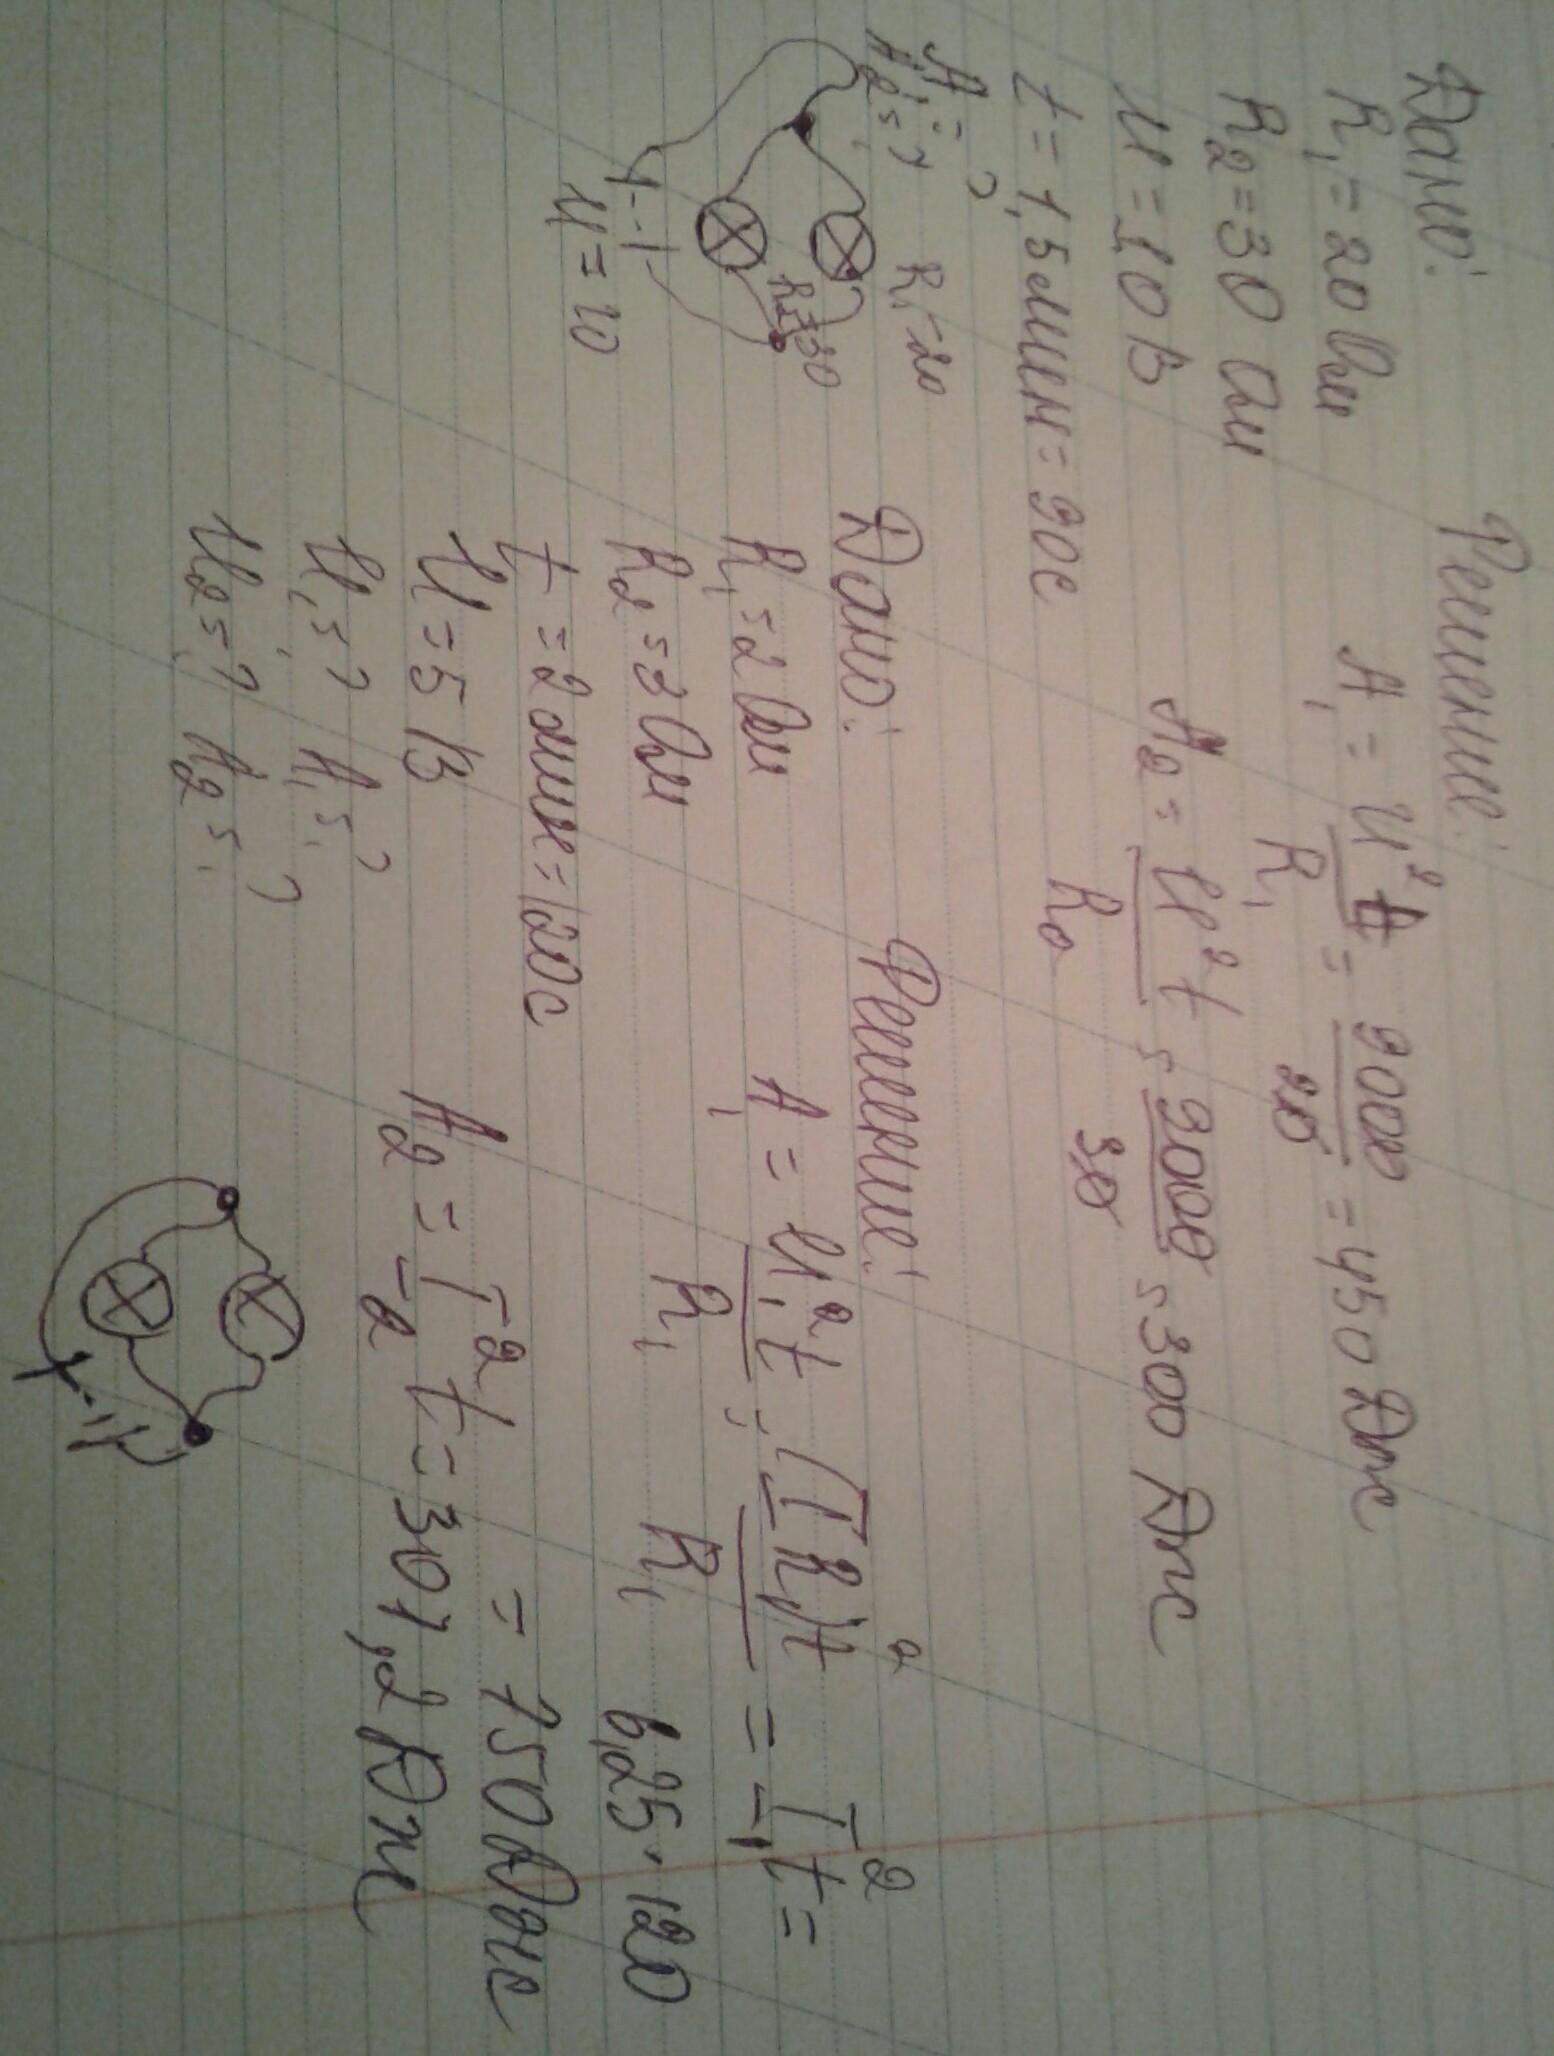 Дано:
R₁ = 20 Ом
R₂ = 30 Ом
U = 10 В
t = 1,5 мин = 90 с
A₁ = ?
A₂ = ?
R₁ = 20
R₂ = 30
U = 10
Решение:
A₁ = U²t/R₁ = 9000/20 = 450 Дж
A₂ = U²t/R₂ = 9000/30 = 300 Дж
Дано:
R₁ = 2 Ом
R₂ = 3 Ом
t = 2 мин = 120 с
U = 5 В
U₁ = ? A₁ = ?
U₂ = ? A₂ = ?
Решение:
A₁ = U₁²t/R₁ = (I R₁)²t/R₁ = I₁²t =
6,25 · 120
= 750 Дж
A₂ = I₂²t = 301,2 Дж